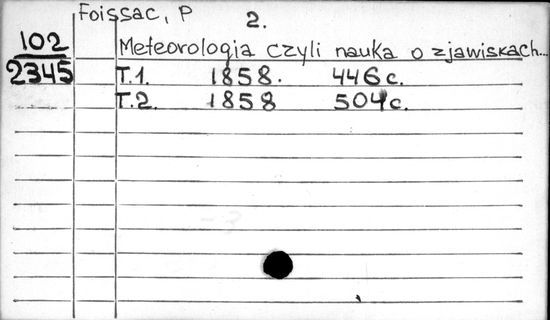 Foissac, P
2.
102
2345
Meteorologia czyli nauka o zjawiskach...
T.1. 1858. 446c.
T.2. 1858 504c.